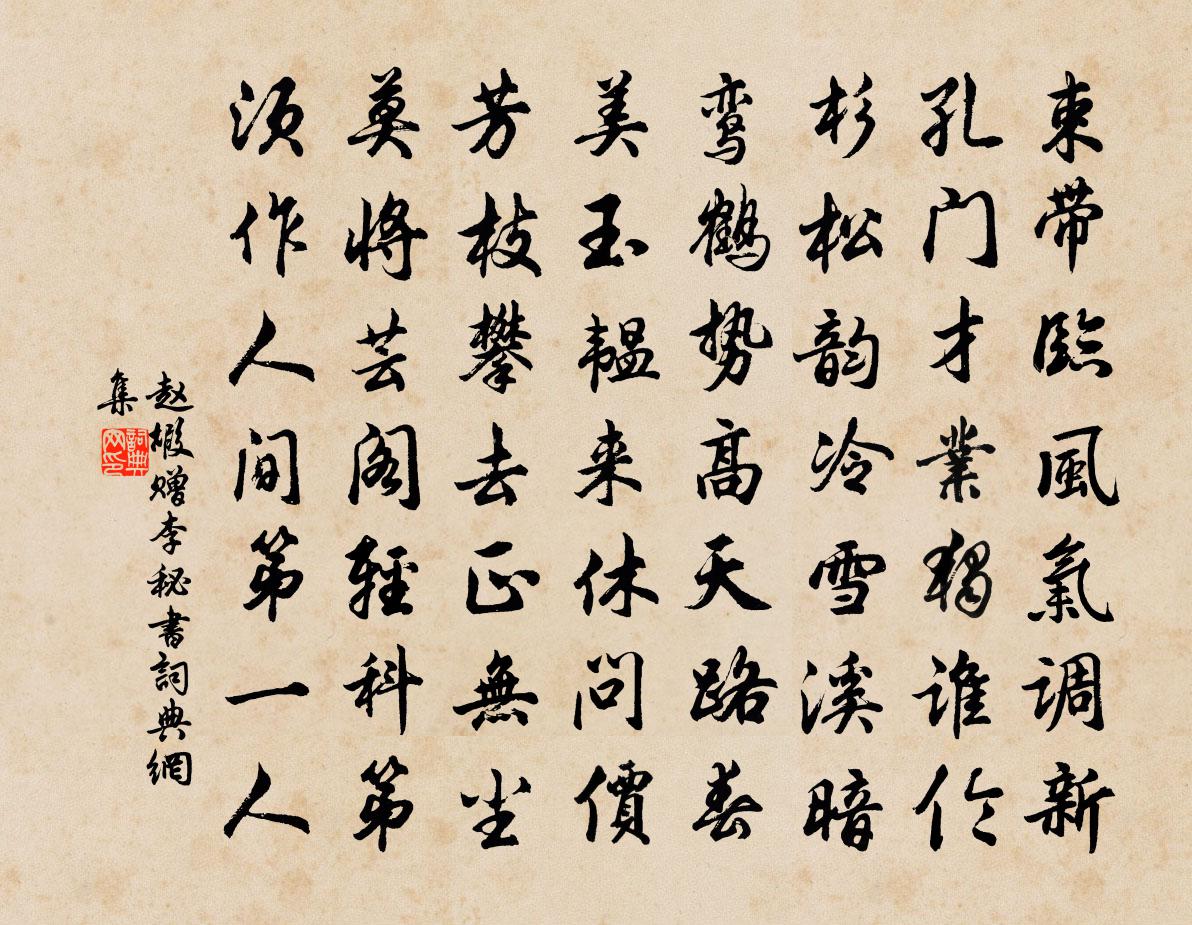 束带臨風氣调新
孔门才業獨谁伦
杉松韵冷雪溪暗
鸾鹤势高天路春
美玉韫来休问價
芳枝攀去正無尘
莫將芸阁輕科第
须作人间第一人
赵嘏赠李秘書詞典網
集
詞典网印